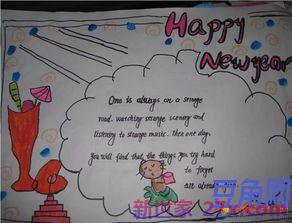 Happy
New year
One is always on a strange
road. watching strange scenery and
listening to strange music. then one day.
you will find that the things you try hard
to forget
are already